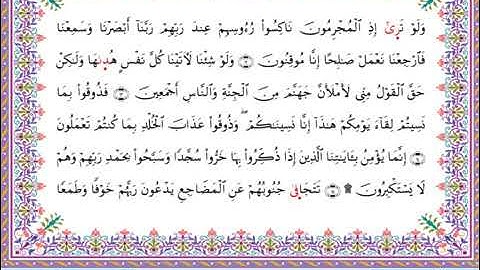 وَلَوْ تَرَىٰٓ إِذِ ٱلْمُجْرِمُونَ نَاكِسُوا۟ رُءُوسِهِمْ عِندَ رَبِّهِمْ رَبَّنَآ أَبْصَرْنَا وَسَمِعْنَا
فَٱرْجِعْنَا نَعْمَلْ صَٰلِحًا إِنَّا مُوقِنُونَ ۝١٢ وَلَوْ شِئْنَا لَءَاتَيْنَا كُلَّ نَفْسٍ هُدَىٰهَا وَلَٰكِنْ
حَقَّ ٱلْقَوْلُ مِنِّى لَأَمْلَأَنَّ جَهَنَّمَ مِنَ ٱلْجِنَّةِ وَٱلنَّاسِ أَجْمَعِينَ ۝١٣ فَذُوقُوا۟ بِمَا
نَسِيتُمْ لِقَآءَ يَوْمِكُمْ هَٰذَآ إِنَّا نَسِينَٰكُمْ ۖ وَذُوقُوا۟ عَذَابَ ٱلْخُلْدِ بِمَا كُنتُمْ تَعْمَلُونَ
۝١٤ إِنَّمَا يُؤْمِنُ بِـَٔايَٰتِنَا ٱلَّذِينَ إِذَا ذُكِّرُوا۟ بِهَا خَرُّوا۟ سُجَّدًا وَسَبَّحُوا۟ بِحَمْدِ رَبِّهِمْ وَهُمْ
لَا يَسْتَكْبِرُونَ ۩ ۝١٥ تَتَجَافَىٰ جُنُوبُهُمْ عَنِ ٱلْمَضَاجِعِ يَدْعُونَ رَبَّهُمْ خَوْفًا وَطَمَعًا